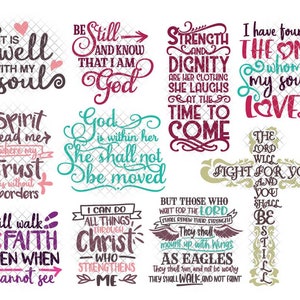 IT IS
well
WITH MY
soul
BE Still
AND KNOW
THAT I AM
God
STRENGTH
AND
DIGNITY
ARE HER CLOTHING
SHE LAUGHS
AT THE
TIME TO
COME
I have found
THE ONE
whom
my soul
LOVES
Spirit
lead me
where my
Trust
is without
borders
God
is within her
She shall not
be moved
THE
LORD
WILL
FIGHT FOR YOU
AND
YOU
SHALL
BE
STILL
will walk
FAITH
EVEN WHEN
cannot see
I CAN DO
ALL THINGS
THROUGH
Christ
WHO
STRENGTHENS
ME
BUT THOSE WHO
WAIT FOR THE LORD
SHALL RENEW THEIR STRENGTH
They shall
mount up with Wings
AS EAGLES
THEY SHALL RUN, AND NOT BE WEARY
THEY SHALL WALK AND NOT FAINT